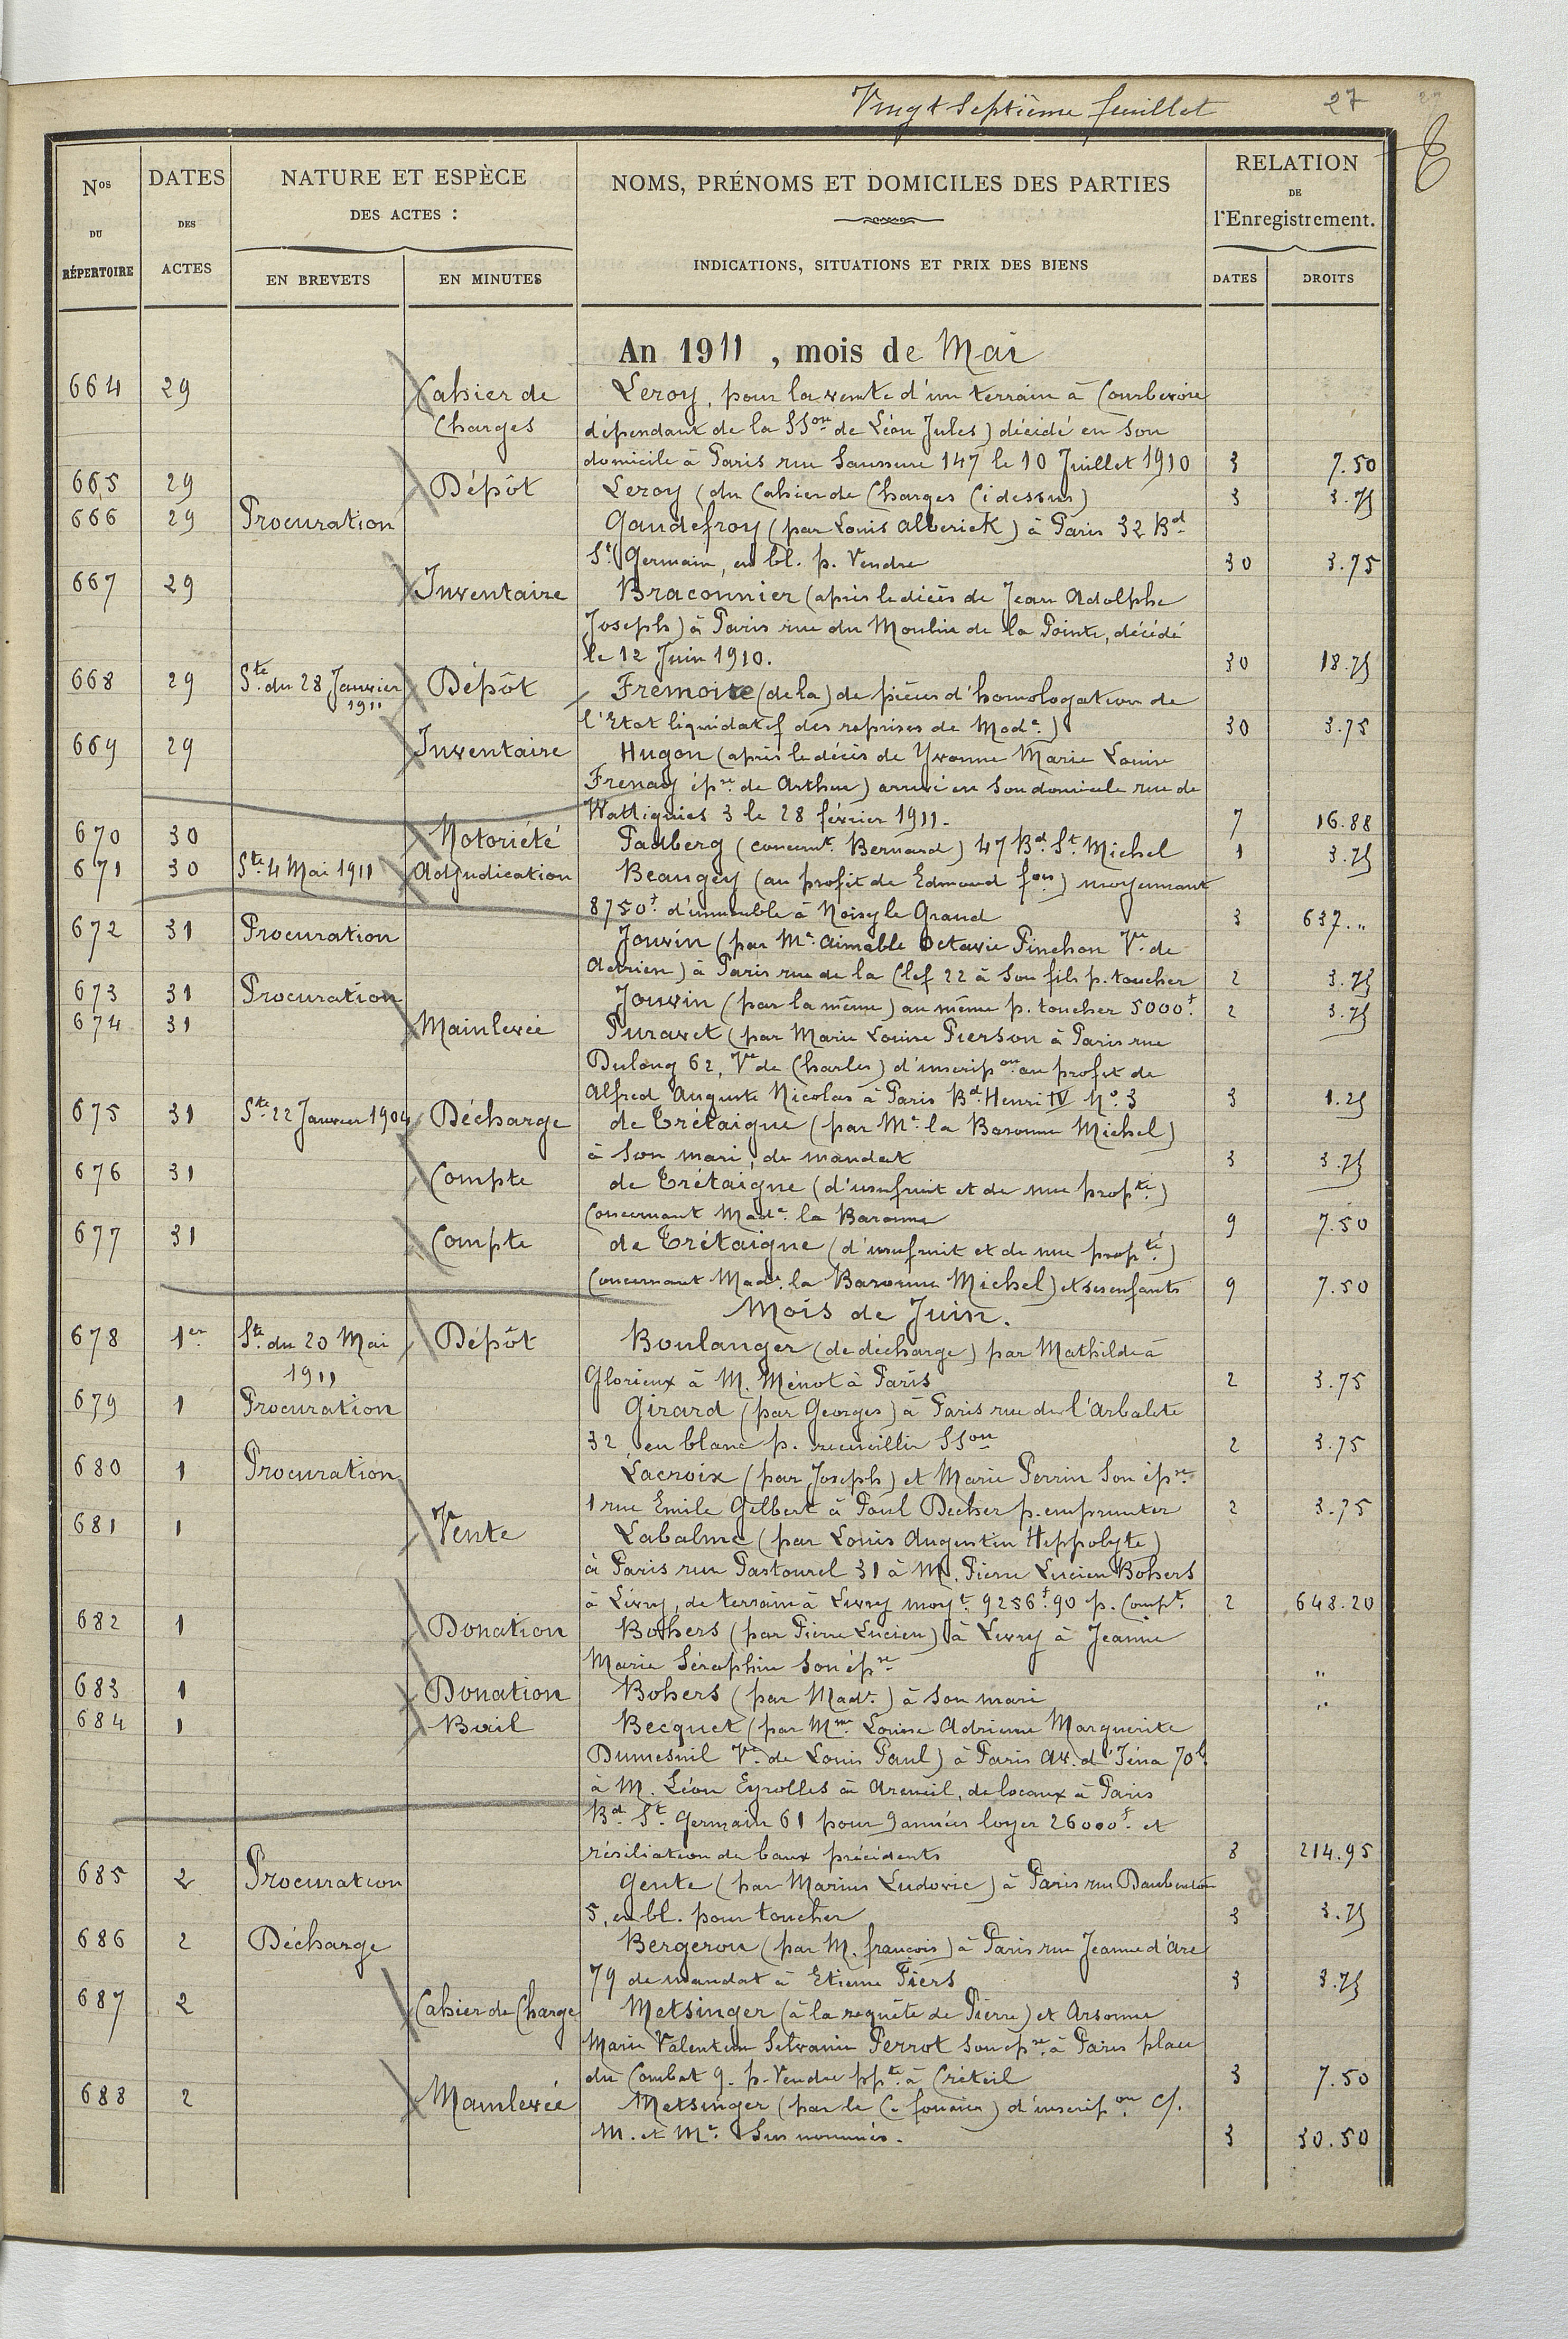 Vingt Septième feuillet 27
Nos DU RÉPERTOIRE
DATES DES ACTES
NATURE ET ESPÈCE DES ACTES :
EN BREVETS
EN MINUTES
NOMS, PRÉNOMS ET DOMICILES DES PARTIES
INDICATIONS, SITUATIONS ET PRIX DES BIENS
RELATION DE l'Enregistrement.
DATES
DROITS
An 1911 , mois de Mai
664 29 Cahier de Leroy, pour la vente d'un terrain à Courbevoie
Charges dépendant de la SSon de Léon Jules) décédé en son
domicile à Paris rue Saussure 147 le 10 Juillet 1910 3 7.50
665 29 Dépôt Leroy (du Cahier de Charges Ci dessus) 3 3.75
666 29 Procuration Gaudefroy (par Louis Alberick) à Paris 32 Bd
St Germain, en bl. p. Vendre 30 3.75
667 29 Inventaire Braconnier (après le décès de Jean Adolphe
Joseph) à Paris rue du Moulin de la Pointe, décédé
le 12 Juin 1910. 30 18.75
668 29 Ste du 28 Janvier 1911 Dépôt Fremoise (de la) de pièces d'homologation de
l'Etat liquidatif des reprises de Made.) 30 3.75
669 29 Inventaire Hugon (après le décès de Yvonne Marie Louise
Frenay épse de Arthur) arrivé en son domicile rue de
Wattignies 3 le 28 février 1911. 7 16.88
670 30 Notoriété Padberg (concernt. Bernard) 47 Bd St Michel 1 3.75
671 30 Ste 4 Mai 1911 Adjudication Beaugey (au profit de Edmond fois) moyennant
8750f. d'immeuble à Noisy le Grand 3 637.〃
672 31 Procuration Jouvin (par Me Aimable Octavie Pinchon Ve de
Adrien) à Paris rue de la Clef 22 à son fils p. toucher 2 3.75
673 31 Procuration Jouvin (par la même) au même p. toucher 5000f. 2 3.75
674 31 Mainlevée Puravet (par Marie Louise Pierson à Paris rue
Dulong 62, Ve de Charles) d'inscripon au profit de
Alfred Auguste Nicolas à Paris Bd Henri IV No 3 3 1.25
675 31 Ste 22 Janvier 1904 Décharge de Trétaigne (par Me la Baronne Michel)
à son mari, de mandat 3 3.75
676 31 Compte de Trétaigne (d'usufruit et de nue propté)
Concernant Made la Baronne 9 7.50
677 31 Compte de Trétaigne (d'usufruit et de nue propté)
(Concernant Made la Baronne Michel) et ses enfants 9 7.50
Mois de Juin.
678 1er Ste du 20 Mai Dépôt Boulanger (de décharge) par Mathilde à
1911 Glorieux à M. Ménot à Paris 2 3.75
679 1 Procuration Girard (par Georges) à Paris rue de l'Arbalète
32, en blanc p. recueillir SSon 2 3.75
680 1 Procuration Lacroix (par Joseph) et Marie Perrin son épse
1 rue Emile Gilbert à Paul Decher p. emprunter 2 3.75
681 1 Vente Labalme (par Louis Augustin Hippolyte)
à Paris rue Pastourel 31 à M. Pierre Lucien Bohers
à Livry, de terrain à Livry moyt. 9256f.90 p. Compt. 2 648.20
682 1 Donation Bohers (par Pierre Lucien) à Livry à Jeanne
Marie Séraphin son épse 〃
683 1 Donation Bohers (par Made) à son mari 〃
684 1 Bail Becquet (par Mme Louise Adrienne Marguerite
Dumesnil Ve de Louis Paul) à Paris Av. d'Iéna 70b.
à M. Léon Eyrolles à Arcueil, de locaux à Paris
Bd St Germain 61 pour 9 années loyer 26000f. et
résiliation de baux précédents 8 214.95
685 2 Procuration Gente (par Marius Ludovic) à Paris rue Daubenton
5, en bl. pour toucher 3 3.75
686 2 Décharge Bergeron (par M. françois) à Paris rue Jeanne d'Arc
79 de mandat à Etienne Fiers 3 3.75
687 2 Cahier de Charge Metsinger (à la requête de Pierre) et Arsonne
Marie Valentin Silvanie Perrot son épse à Paris place
du Combat 9. p. Vendre ppté à Créteil 3 7.50
688 2 Mainlevée Metsinger (par le Ct foncier) d'inscripon c/.
M. et Me Sus nommés. 3 30.50